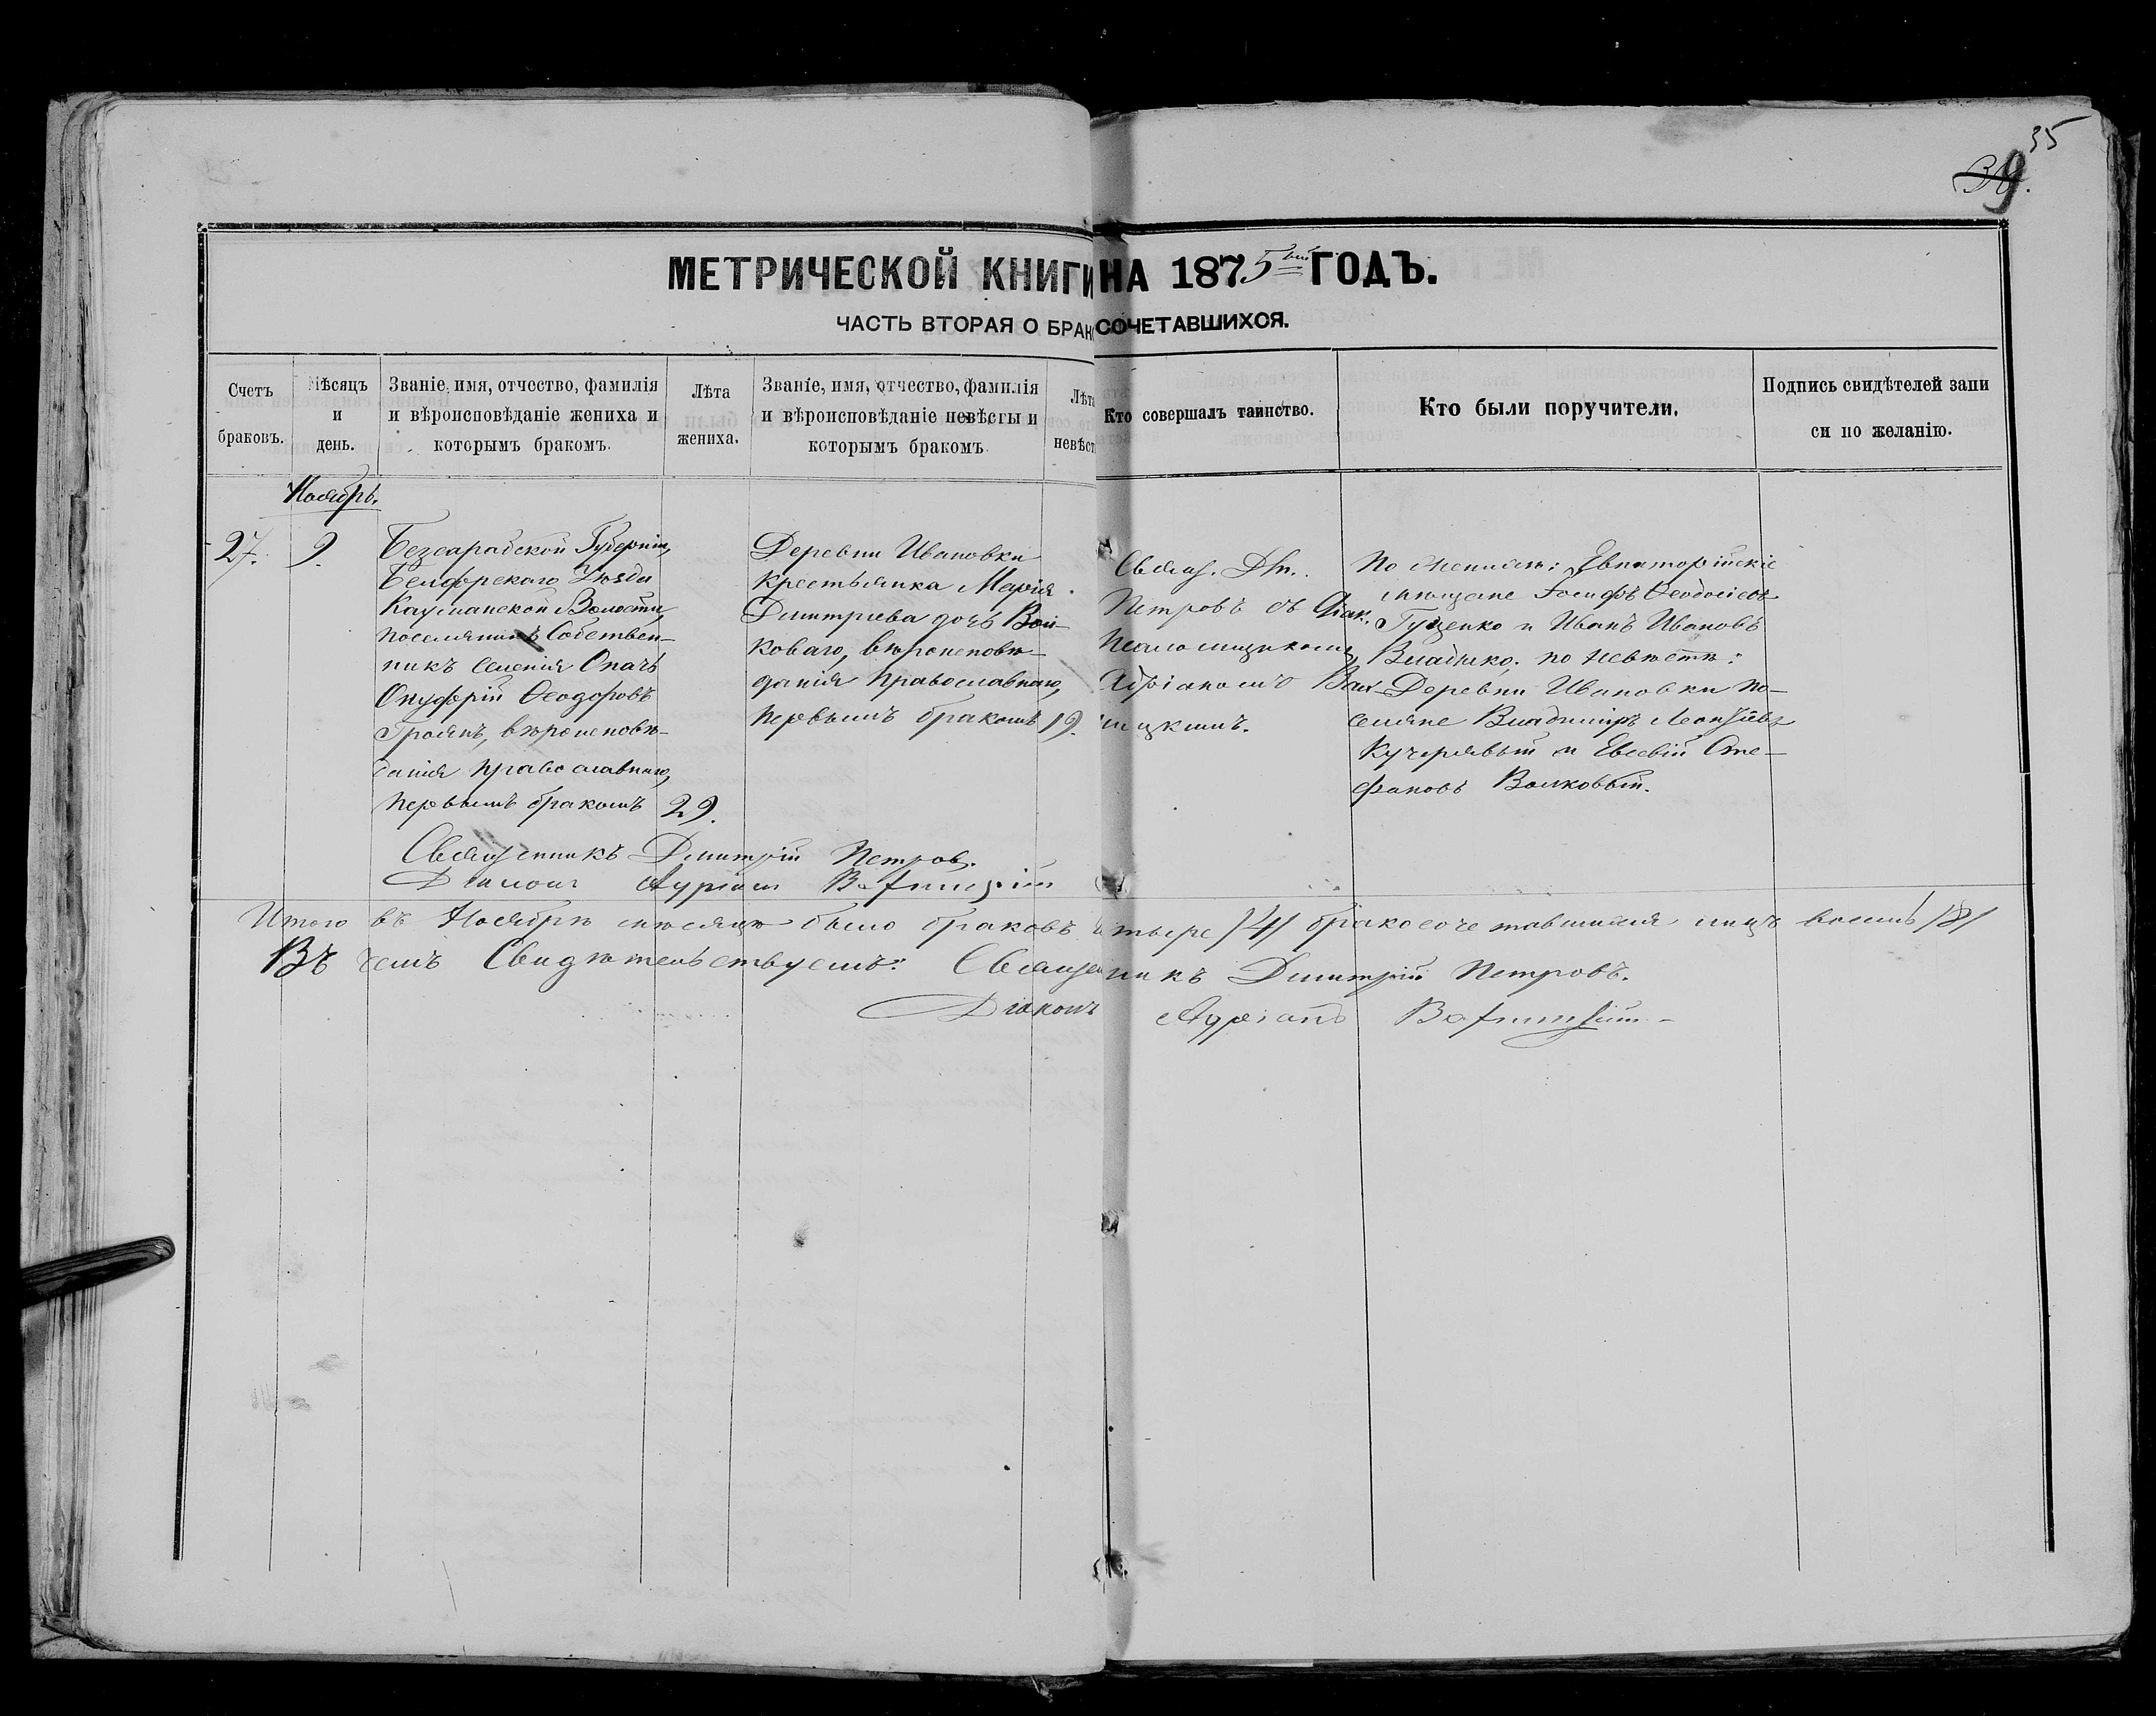 35
39.
МЕТРИЧЕСКОЙ КНИГИ НА 1875ый ГОДЪ.
ЧАСТЬ ВТОРАЯ О БРАКОСОЧЕТАВШИХСЯ.
Счетъ браковъ.
Мѣсяцъ и день.
Званіе, имя, отчество, фамилія и вѣроисповѣданіе жениха и которымъ бракомъ.
Лѣта жениха.
Званіе, имя, отчество, фамилія и вѣроисповѣданіе невѣсты и которымъ бракомъ
Лѣта невѣст
Кто совершалъ таинство.
Кто были поручители.
Подпись свидѣтелей запи
си по желанію.
Ноябрь.
27.
9.
Безсарабской Губерніи,
Бендерскаго Уѣзда
Каушанской Волости,
поселянинъ Собствен-
никъ селенія Опачъ
Онуфрій Ѳеодоровъ
Троянъ, вѣроисповѣ-
данія православнаго,
первымъ бракомъ
29.
Деревни Ивановки
крестьянка Марія
Димтріева дочь Вол-
коваго, вѣроисповѣ-
данія православнаго,
первымъ бракомъ
19.
Свящ. Дм.
Петровъ съ Діак.
Псаломщикомъ
Адріаномъ Ват-
ницкимъ.
По женихѣ: Евпаторійскіе
мѣщане Іосифъ Ѳеодосіевъ
Гуценко и Иванъ Ивановъ
Владыко; по невѣстѣ:
Деревни Ивановки по-
селяне Владиміръ Леонтіевъ
Кучерявый и Евсевій Сте-
фановъ Волковый.
Священникъ Димитрій Петровъ.
Діаконъ Адріанъ
Итого въ Ноябрѣ мѣсяцѣ было браковъ четыре /4/ бракосочетавшихся лицъ восемь /8/
Въ чемъ Свидѣтельствуемъ: Священникъ Димитрій Петровъ.
Діаконъ Адріанъ